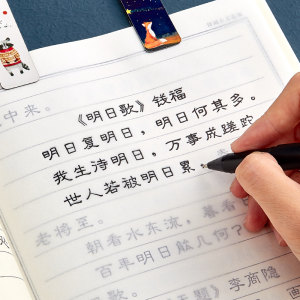 中来。
《明日歌》钱福
明日复明日，明日何其多。
我生诗明日，万事成蹉跎
世人若被明日累，
老将至。
朝看水东流，暮看日
百年明日能几何？
歌。
题》李商隐